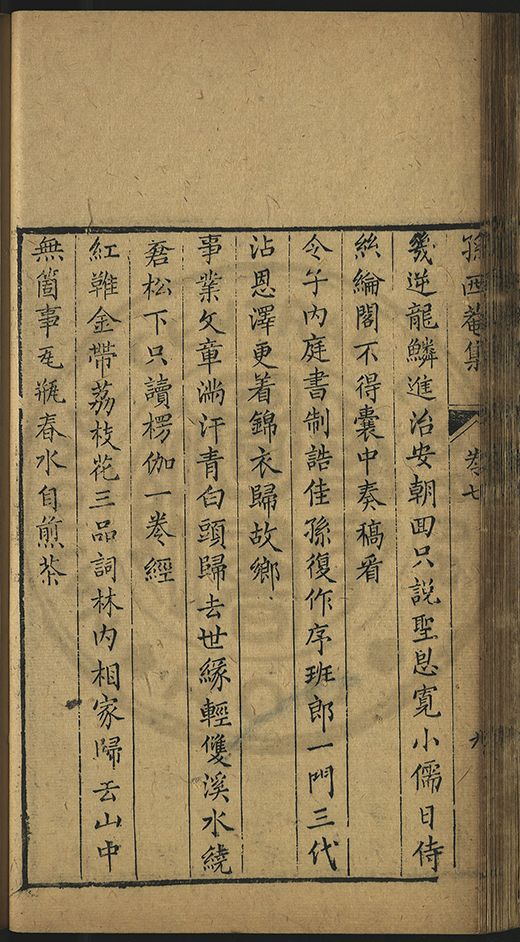 孫西菴集 卷七 九
幾逆龍鱗進治安朝回只說聖恩寬小儒日侍
絲綸閣不得囊中奏稿看
令子內庭書制誥佳孫復作序班郎一門三代
沾恩澤更着錦衣歸故鄉
事業文章滿汗青白頭歸去世緣輕雙溪水繞
磨松下只讀楞伽一卷經
紅鞓金帶荔枝花三品詞林內相家歸去山中
無箇事瓦瓶春水自煎茶